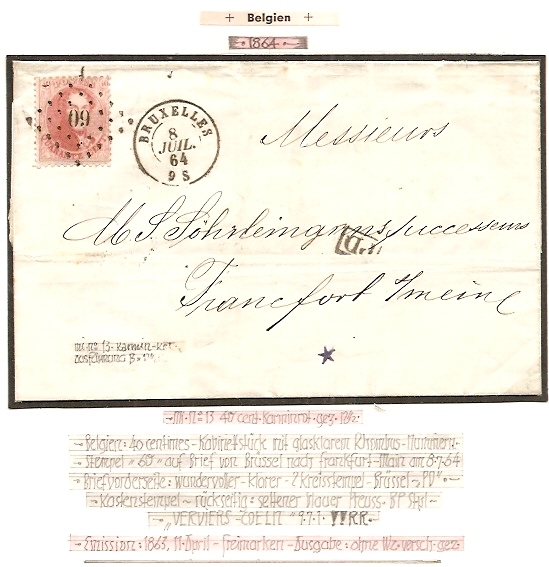 + Belgien +
- 1864 -
60
BRUXELLES
8
JUIL.
64
9 S
Messieurs
successeurs
Francfort s/mein
MI. No 13 - Karmin-rot-
Ausführung B.
- Mi. No 13 40 cent. Karminrot - gez. 12½ -
- Belgien: 40 centimes - Kabinettstück mit glasklarem Rhombus - Nummern-
- Stempel "60" auf Brief von Brüssel nach Frankfurt - Main am 8.7.64
- Briefvorderseite: wundervoller - klarer - 2 Kreisstempel - Brüssel - "PD" -
- Kastenstempel - rückseitig - seltener blauer Preuss.
- "VERVIERS - COELN" 9.7. I. !!RR.
- Emission: 1863, 11. April - Freimarken - Ausgabe: ohne Wz. versch. gez.